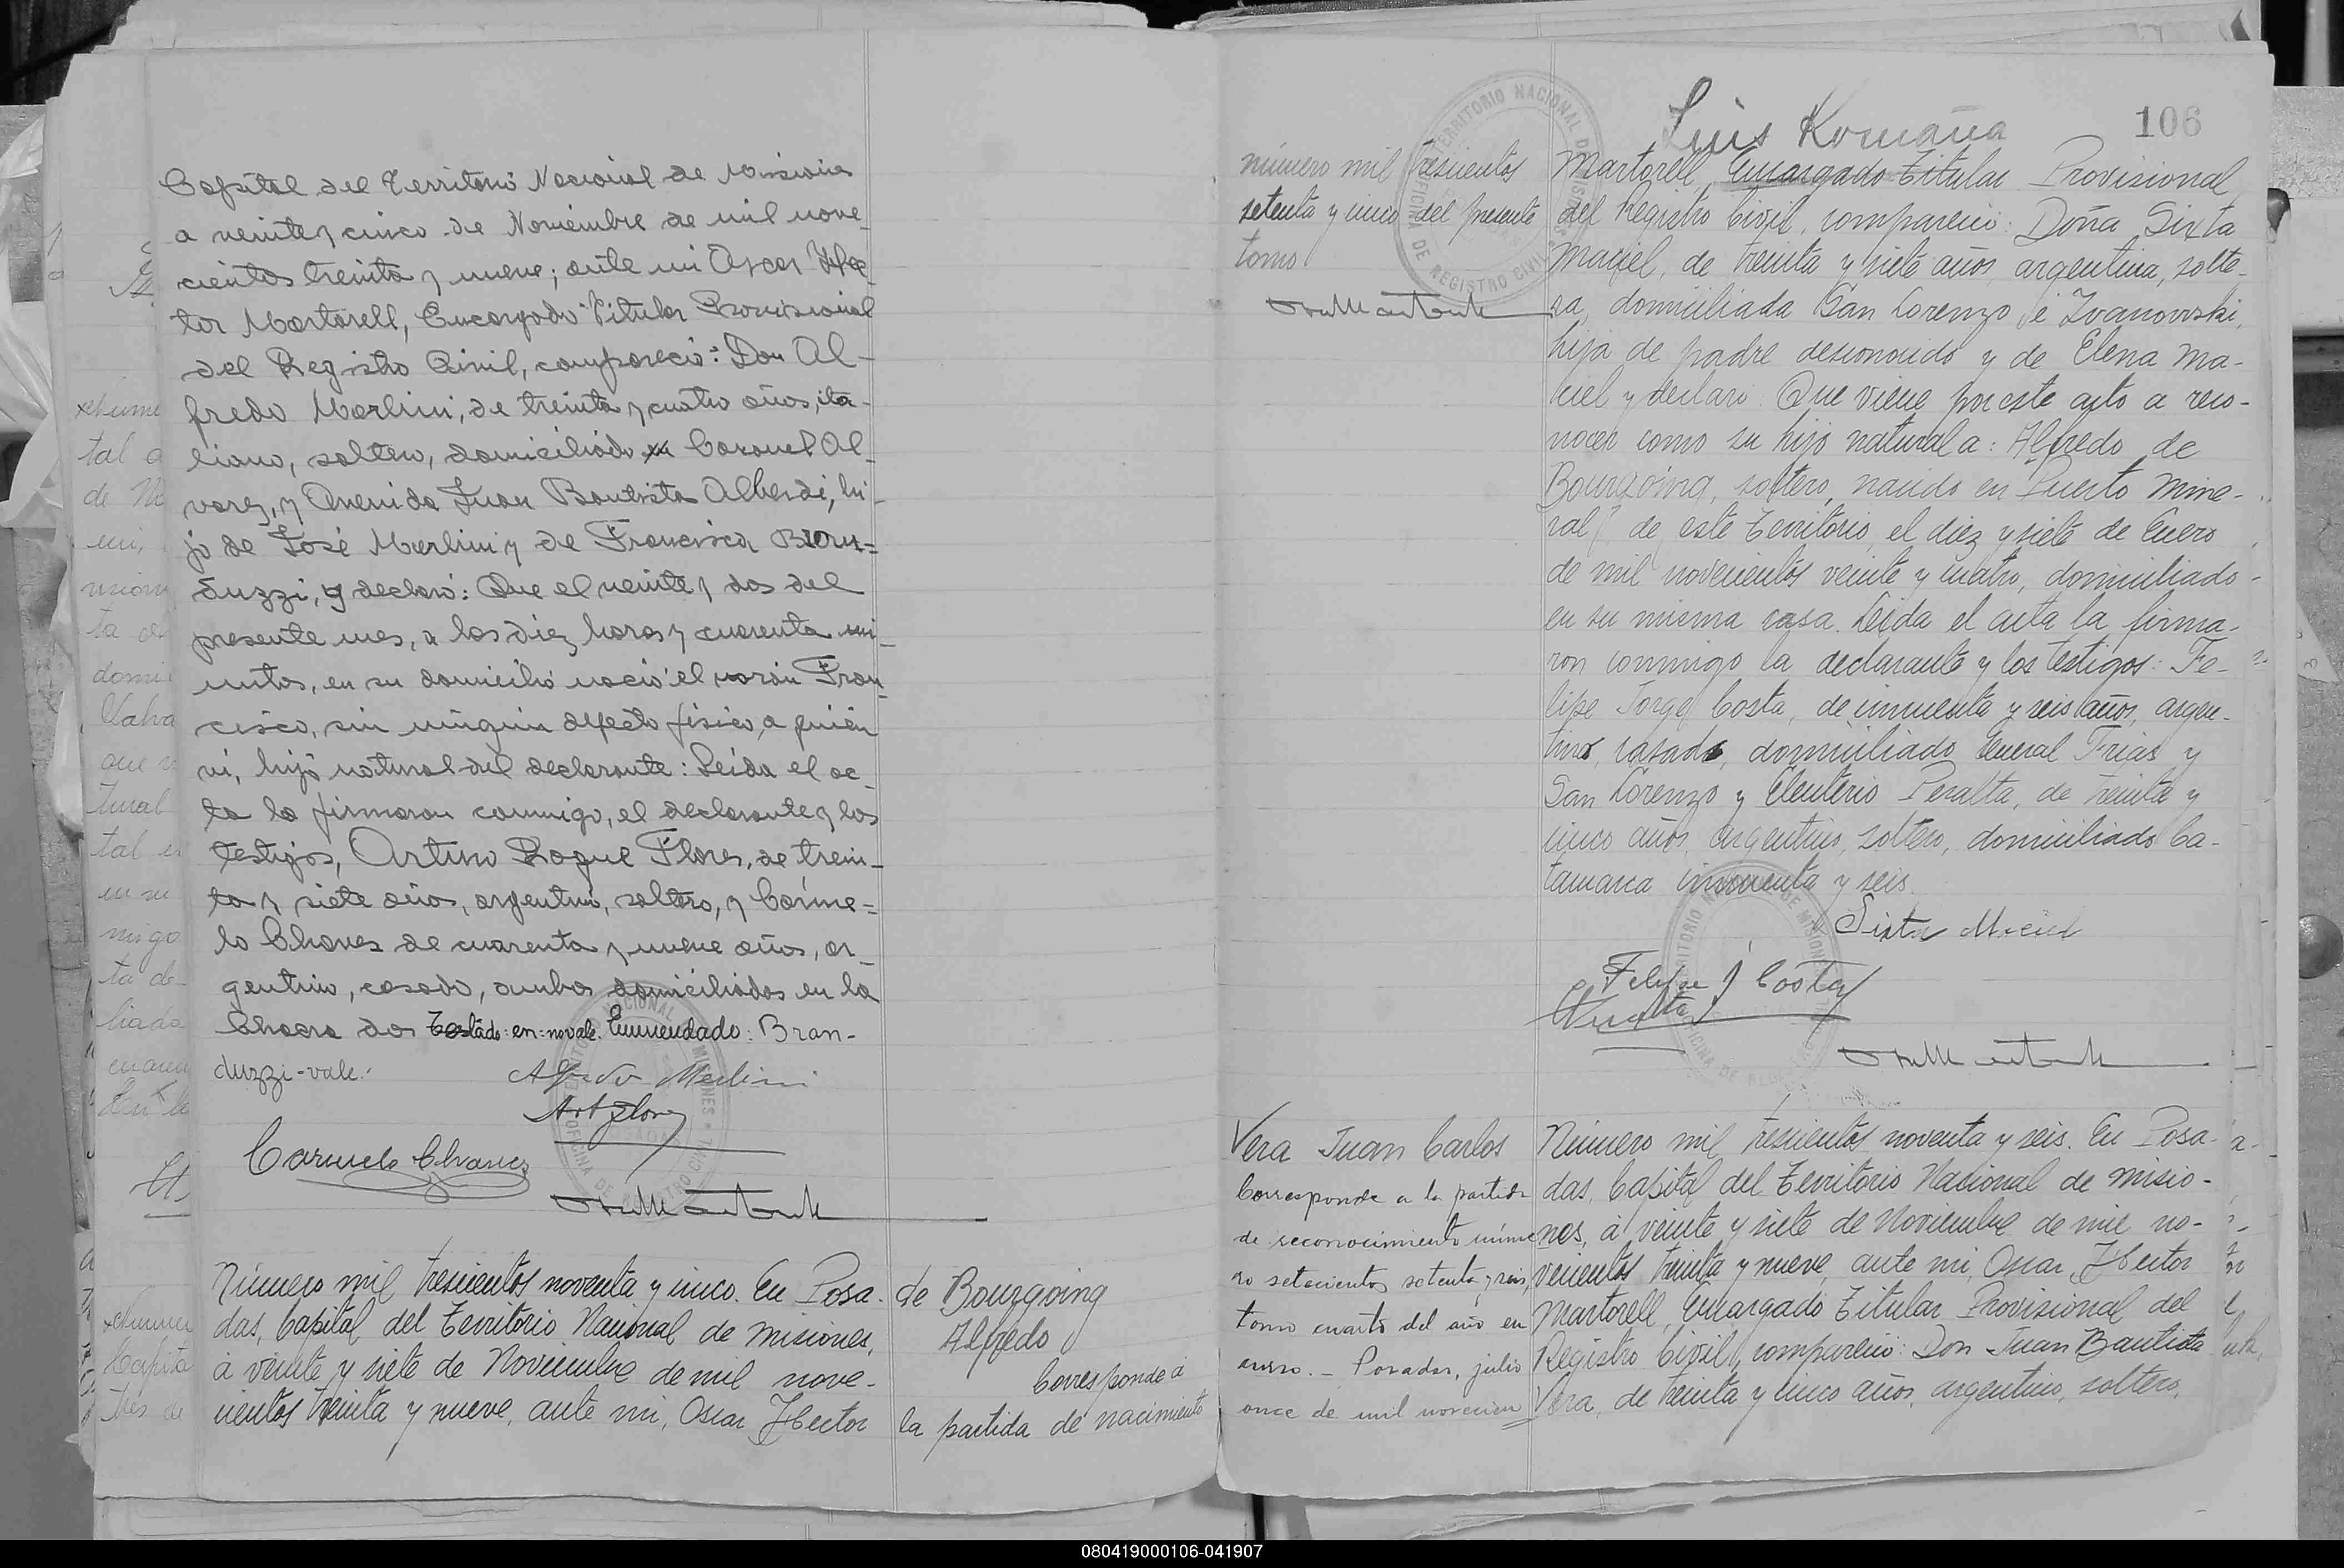 Capital del Territorio Nacional de Misiones
a veinte y cinco de Noviembre de mil nove-
cientos treinta y nueve; ante mi Oscar Hec
tor Martorell, Encargado Titular Provisional
del Registro Civil, compareció: Don Al-
fredo Merlini, de treinta y cuatro años, ita-
liano, soltero, domiciliado en Coronel Al-
varez, y Avenida Juan Bautista Alberdi, hi-
jo de José Merlini y de Francisca Bran=
duzzi, y declaró: Que el veinte y dos del
presente mes, a las diez horas y cuarenta mi-
nutos, en su domicilio nació el varón Fran-
cisco, sin ningún defecto físico, a quien
vi, hijo natural del declarante: Leida el ac-
ta la firmaron conmigo, el declarante y los
testigos, Arturo Roque Flores, de trein-
ta y siete años, argentino, soltero, y Carme=
lo Chaves de cuarenta y nueve años, ar-
gentino, casado, ambos domiciliados en la
Chacra dos Testado: en: no vale. Enmendado: Bran-
duzzi-vale.
Alfredo Merlini
Art Flores
Carmelo Chaves
Número mil trescientos noventa y cinco. En Posa-
das, Capital del Territorio Nacional de Misiones,
à veinte y siete de Noviembre de mil nove-
cientos treinta y nueve, ante mi, Oscar Hector
de Bourgoing
Alfredo
Corresponde à
la partida de nacimiento
Luis Romaña
106
número mil trescientos
setenta y cinco del presente
tomo
Martorell, Encargado Titular Provisional
del Registro Civil, compareció: Doña Sixta
Maciel, de treinta y siete años, argentina, solte-
ra, domiciliada San Lorenzo é Ivanowski,
hija de padre desconocido y de Elena Ma-
ciel y declaró: Que viene por este acto a reco-
nocer como su hijo natural a: Alfredo de
Bourgoing, soltero, nacido en Puerto Mine-
ral, de este Territorio, el diez y siete de Enero
de mil novecientos veinte y cuatro, domiciliado
en su misma casa. Leida el acta la firma-
ron conmigo la declarante y los testigos: Fe-
lipe Jorge Costa, de cincuenta y seis años, argen-
tino, casado, domiciliado General Frias y
San Lorenzo y Eleuterio Peralta, de treinta y
cinco años, argentino, soltero, domiciliado Ca-
tamarca cincuenta y seis.
Sixta Maciel
Felipe J Costa
Vera Juan Carlos
Corresponde a la partida
de reconocimiento núme
ro setecientos setenta y seis,
tomo cuarto del año en
curso. - Posadas, julio
once de mil novecien
Número mil trescientos noventa y seis. En Posa-
das, Capital del Territorio Nacional de Misio-
nes, à veinte y siete de Noviembre de mil no-
vecientos treinta y nueve, ante mi, Oscar Hector
Martorell, Encargado Titular Provisional del
Registro Civil, compareció: Don Juan Bautista
Vera, de treinta y cinco años, argentino, soltero,
080419000106-041907